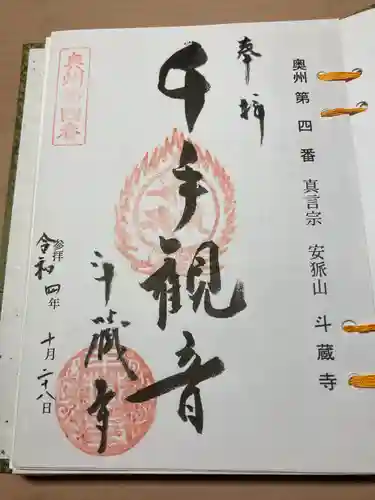 奥州 第四番 真言宗 安狐山 斗蔵寺
奉拝
千手観音
斗蔵寺
奥州第四番
参拝
令和四年
十月二十八日